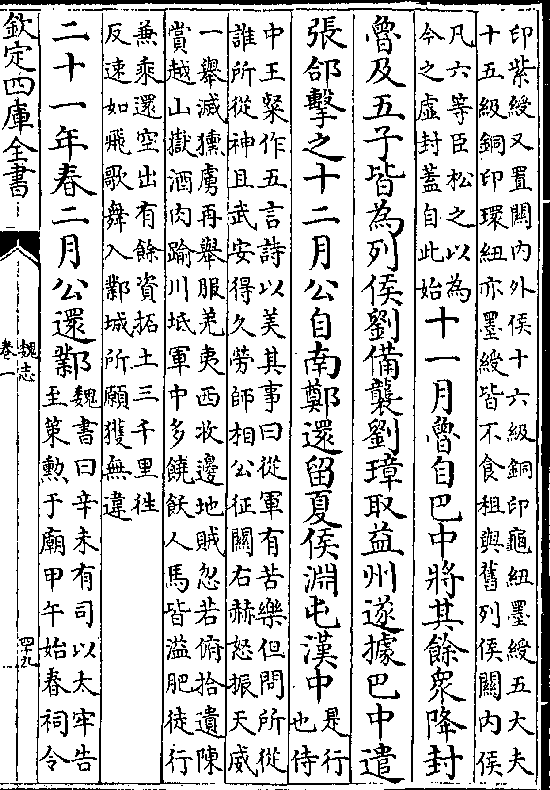 印紫綬又置關内外侯十六級銅印龜紐墨綬五大夫
十五級銅印環紐亦墨綬皆不食租與舊列侯關内侯
凡六等臣松之以為
今之虛封蓋自此始
十一月魯自巴中將其餘衆降封
魯及五子皆為列侯劉備襲劉璋取益州遂據巴中遣
張郃擊之十二月公自南鄭還留夏侯淵屯漢中
是行
也侍
中王粲作五言詩以美其事曰從軍有苦樂但問所從
誰所從神且武安得久勞師相公征關右赫怒振天威
一舉滅獯虜再舉服羌夷西收邊地賊忽若俯拾遺陳
賞越山嶽酒肉踰川坻軍中多饒飫人馬皆溢肥徒行
兼乘還空出有餘資拓土三千里徃
反速如飛歌舞入鄴城所願獲無違
二十一年春二月公還鄴
魏書曰辛未有司以太牢告
至策勲于廟甲午始春祠令
欽定四庫全書
魏志
卷一
四十九